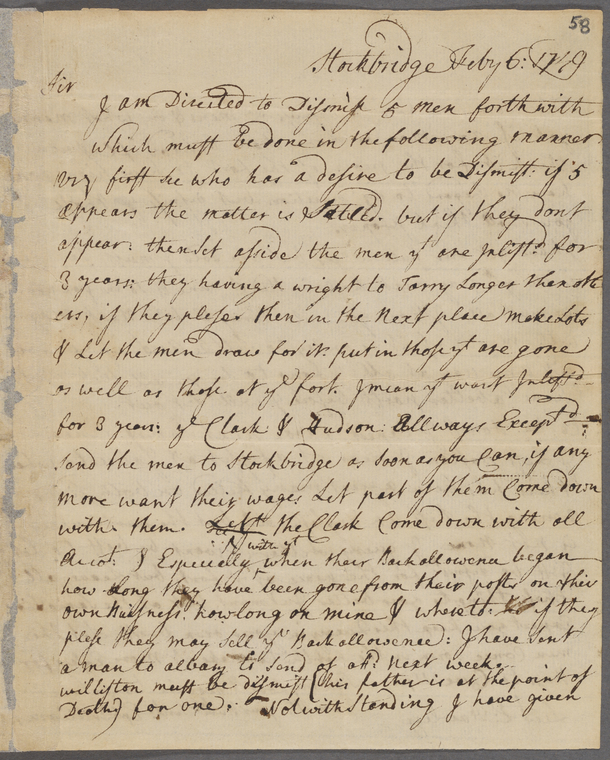 58
Stockbridge Feby 6: 1749
Sir
I am Directed to Dismiss 5 men forthwith
which must be done in the following manner
viz first see who has a desire to be Dismist: if 5
appears the matter is Settled. but if they dont
appear: then Set asside the men yt are Inlistd for
3 years: they having a wright to Tarry Longer than oth
ers, if they pleses then in the Next place make Lots
& Let the men draw for it: put in those yt are gone
as well as those at ye fort. I mean yt want Inlistd
for 3 years: ye Clark & Hudson: Allways Exceptd
send the men to Stockbridge as soon as you Can, if any
more want their wages Let part of them Come down
with them. the Clark Come down with all
Accot: & Especially with yt when their Backallowence began
how long they have been gone from their posts on their
own Buisness: how long on mine & where to: if they
plese they may sell ye Backallowence: I have sent
a man to albany to send of att: next week.
williston must be dismist (his father is at the point of
Death) for one. Notwithstanding I have given